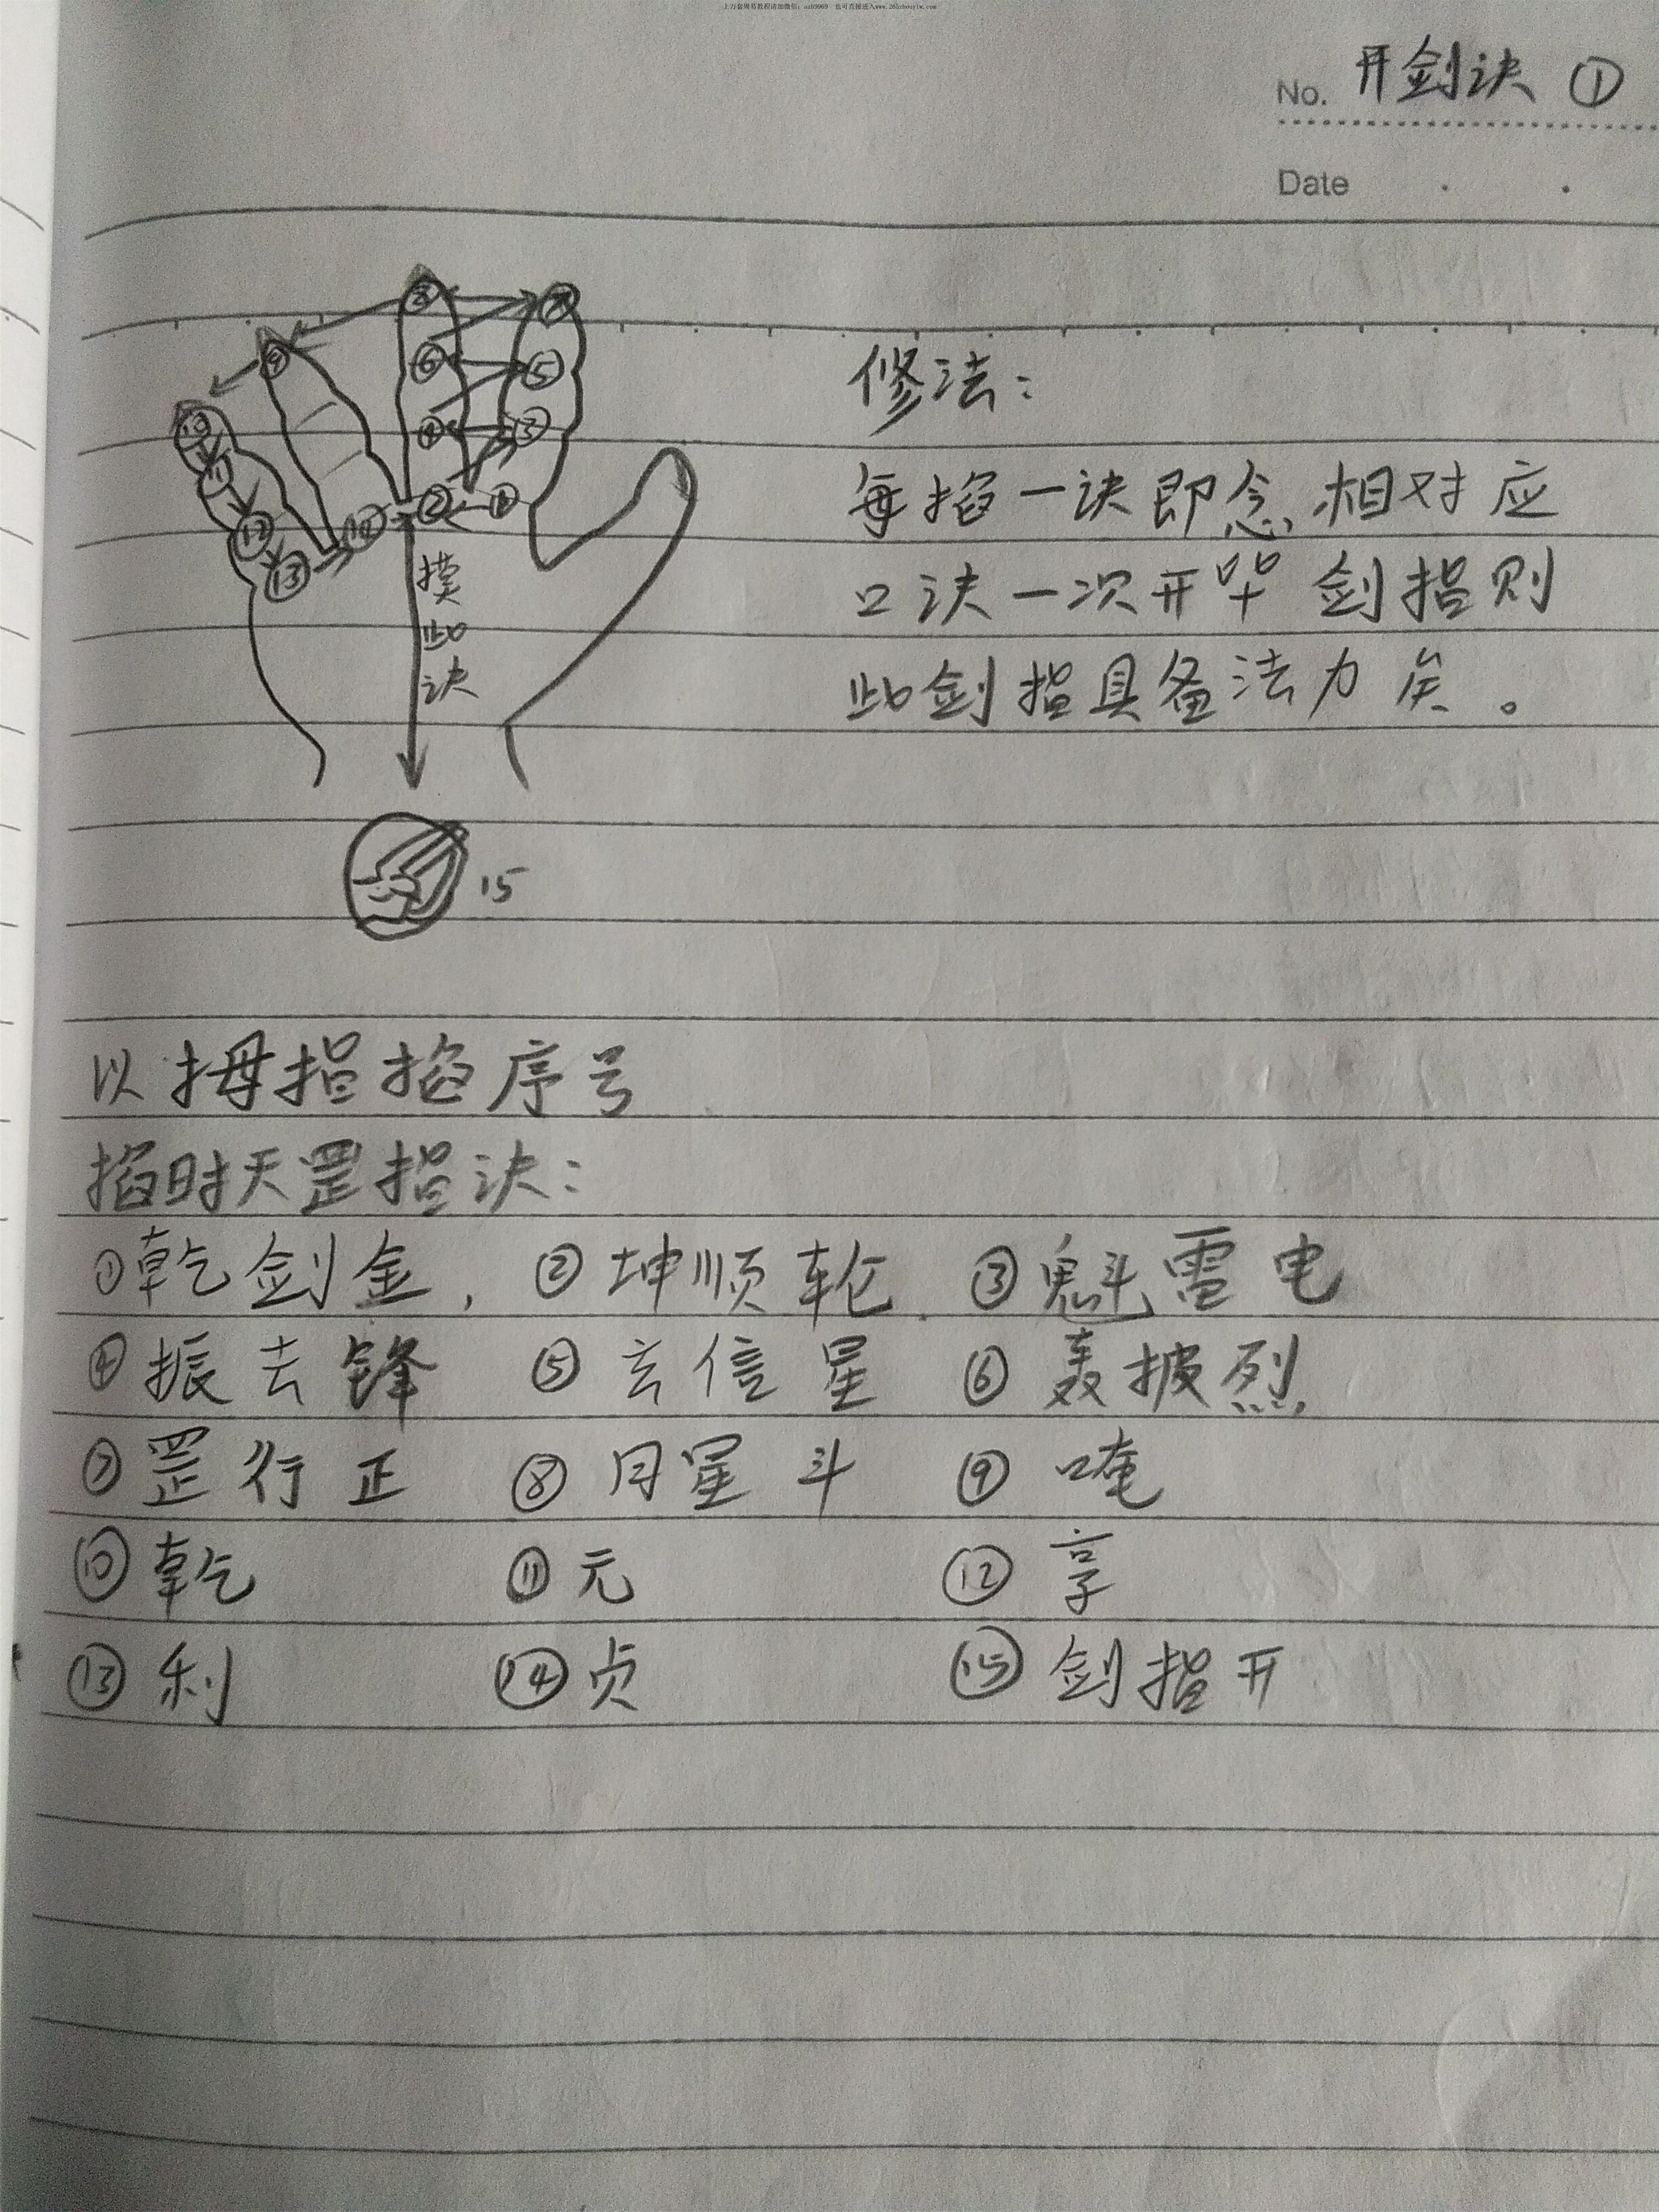 No. 开剑诀 ①
Date
⑦
⑥ ⑤
④ ③
② ①
⑨
⑩
11
⑫
⑬
⑭
摸
此
诀
15
修法：
每掐一诀即念相对应
口诀一次开毕剑指则
此剑指具备法力矣。
以拇指掐序号
掐时天罡指诀：
①乾剑金, ②坤顺轮. ③魁雷电
④振去锋 ⑤玄信星 ⑥轰披烈
⑦罡行正 ⑧月星斗 ⑨唵
⑩乾 ⑪元 ⑫享
⑬利 ⑭贞 ⑮剑指开